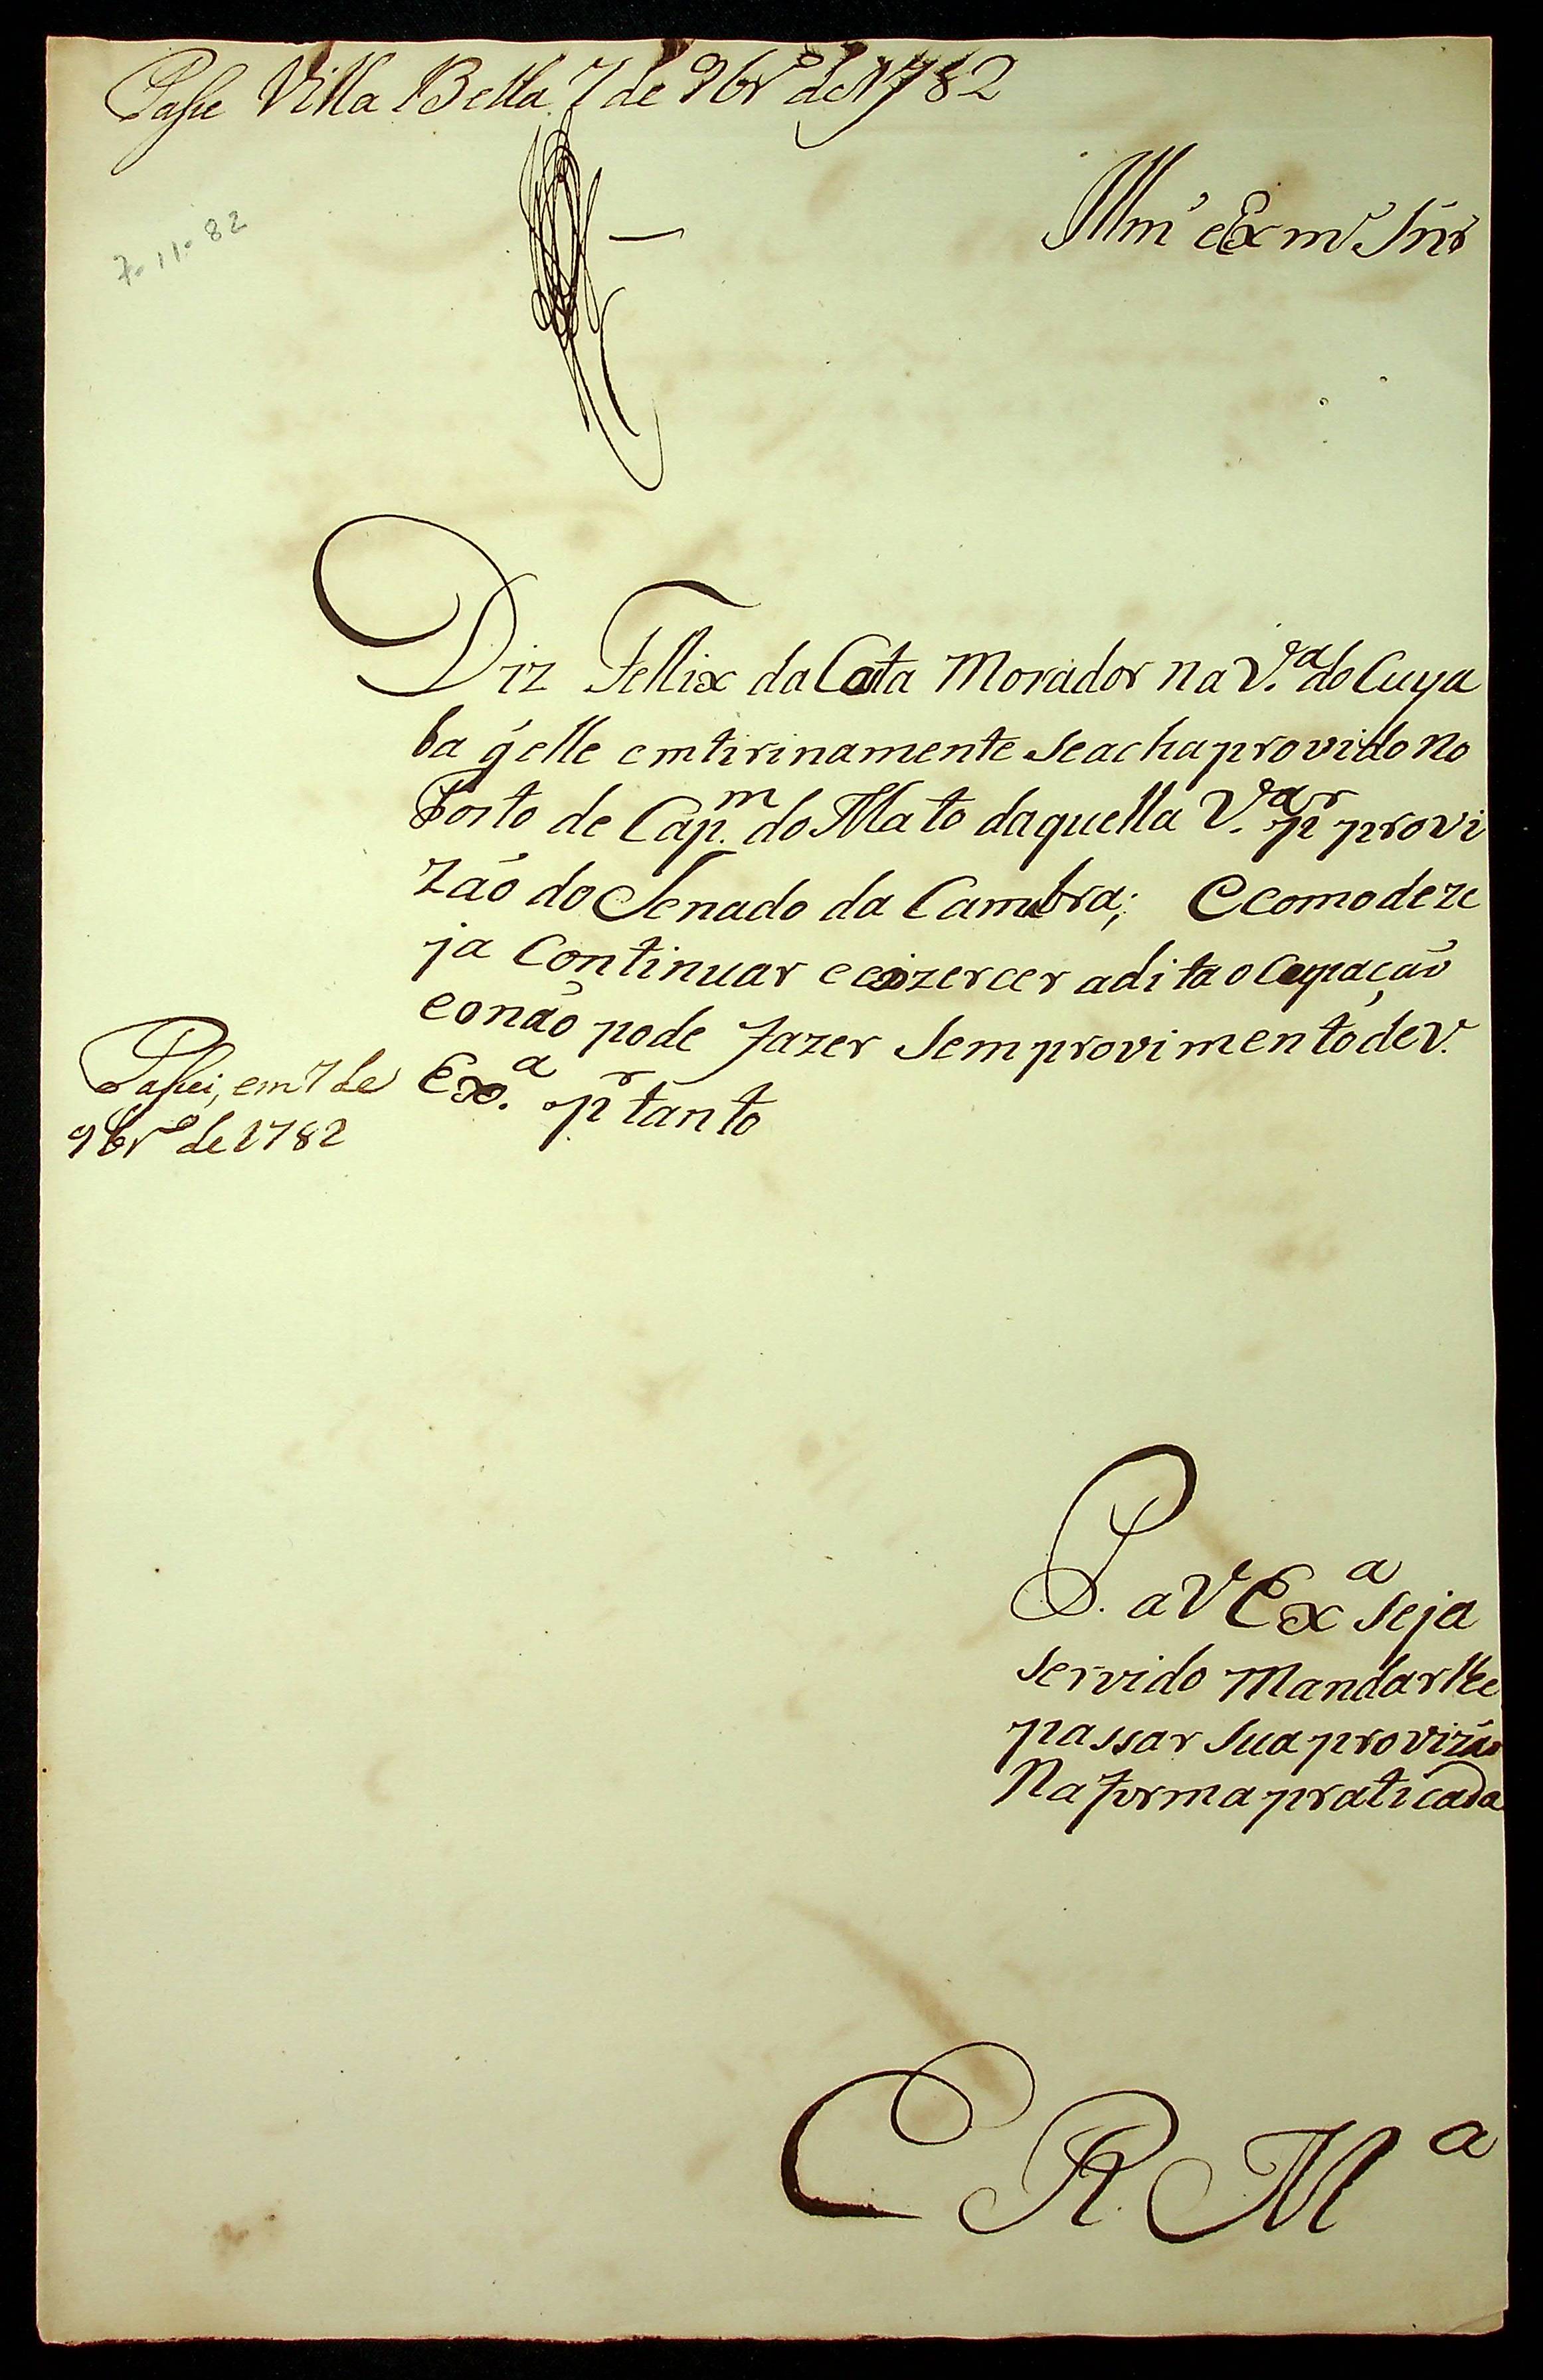 Passe Villa Bella 7 de 9br.o de 1782
7-11-82
Illm.o e Exm.o Snr
Diz Fellix da Costa Morador na V.a do Cuya
ba q̃ elle emtirinamente se acha provido no
Posto de Cap.m do Mato daquella V.a p.r provi
zão do Senado da Camera; E como deze
ja Continuar e eixzercer a dita ocupação
e o não pode fazer Sem provimento de V.
Ex.a p.r tanto
Passei, em 7 de
9br.o de 1782
P. a V Ex.a Seja
Servido Mandar lhe
passar Sua provizão
Na forma praticada
E R. M.a